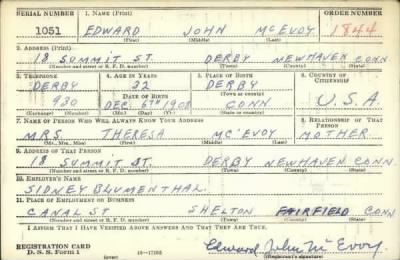 SERIAL NUMBER 1. NAME (Print) ORDER NUMBER
1051 EDWARD JOHN McEVOY 1844
(First) (Middle) (Last)
2. ADDRESS (Print)
18 SUMMIT ST. DERBY NEWHAVEN CONN
(Number and street or R. F. D. number) (Town) (County) (State)
3. TELEPHONE 4. AGE IN YEARS 5. PLACE OF BIRTH 6. COUNTRY OF CITIZENSHIP
DERBY 32 DERBY
DATE OF BIRTH (Town or county)
930 DEC. 6TH 1908 CONN. U.S.A
(Exchange) (Number) (Mo.) (Day) (Yr.) (State or country)
7. NAME OF PERSON WHO WILL ALWAYS KNOW YOUR ADDRESS 8. RELATIONSHIP OF THAT PERSON
MRS. THERESA McEVOY MOTHER
(Mr., Mrs., Miss) (First) (Middle) (Last)
9. ADDRESS OF THAT PERSON
18 SUMMIT ST. DERBY NEWHAVEN CONN.
(Number and street or R. F. D. number) (Town) (County) (State)
10. EMPLOYER'S NAME
SIDNEY BLUMENTHAL
11. PLACE OF EMPLOYMENT OR BUSINESS
CANAL ST SHELTON FAIRFIELD CONN
(Number and street or R. F. D. number) (Town) (County) (State)
I AFFIRM THAT I HAVE VERIFIED ABOVE ANSWERS AND THAT THEY ARE TRUE.
REGISTRATION CARD
D. S. S. Form 1 16—17105 Edward John McEvoy
(over) (Registrant's signature)